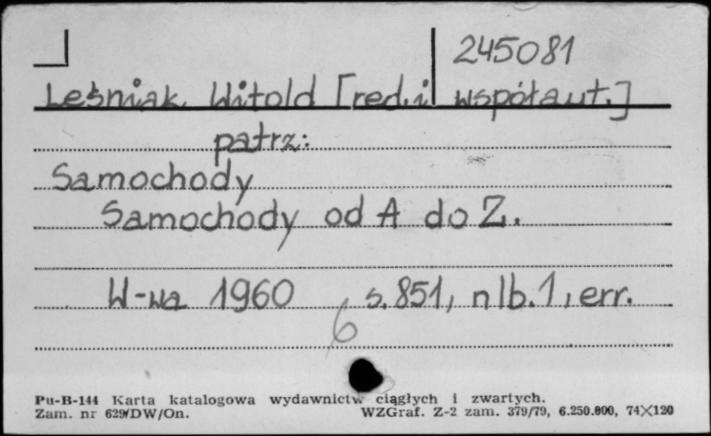 245081
Leśniak Witold [red. i współaut.]
patrz:
Samochody
Samochody od A do Z.
W-wa 1960 s. 851, nlb. 1, err.
6
Pu-B-144 Karta katalogowa wydawnictw ciągłych i zwartych.
Zam. nr 629/DW/On. WZGraf. Z-2 zam. 379/79, 6.250.000, 74×120